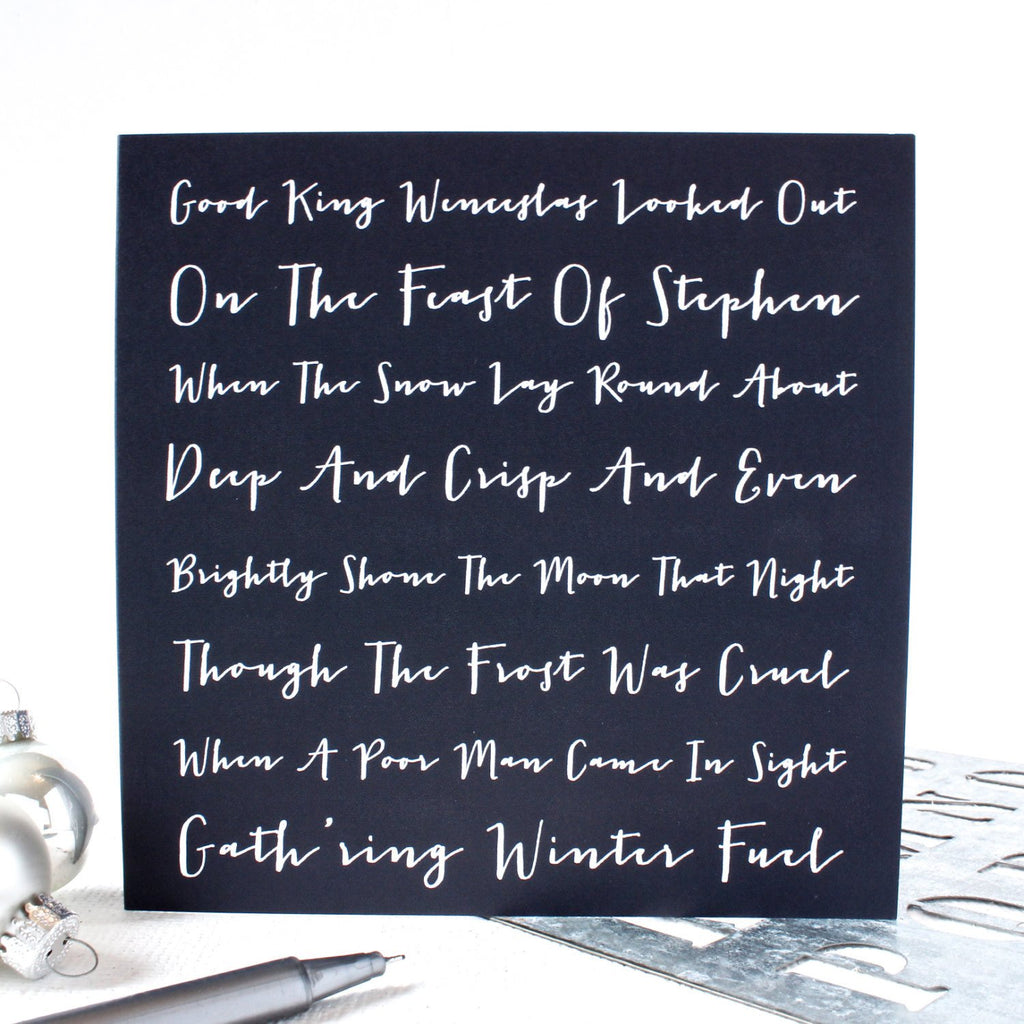 Good King Wenceslas Looked Out
On The Feast Of Stephen
When The Snow Lay Round About
Deep And Crisp And Even
Brightly Shone The Moon That Night
Though The Frost Was Cruel
When A Poor Man Came In Sight
Gath'ring Winter Fuel